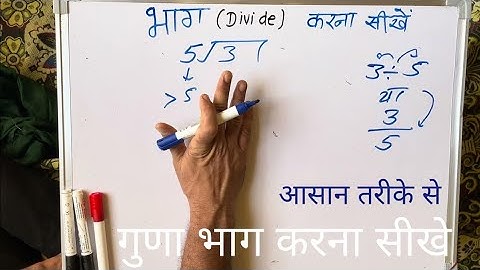 भाग (Divide) करना सीखें
5√3
↓
>5
3÷5
या
3
5
आसान तरीके से
गुणा भाग करना सीखे